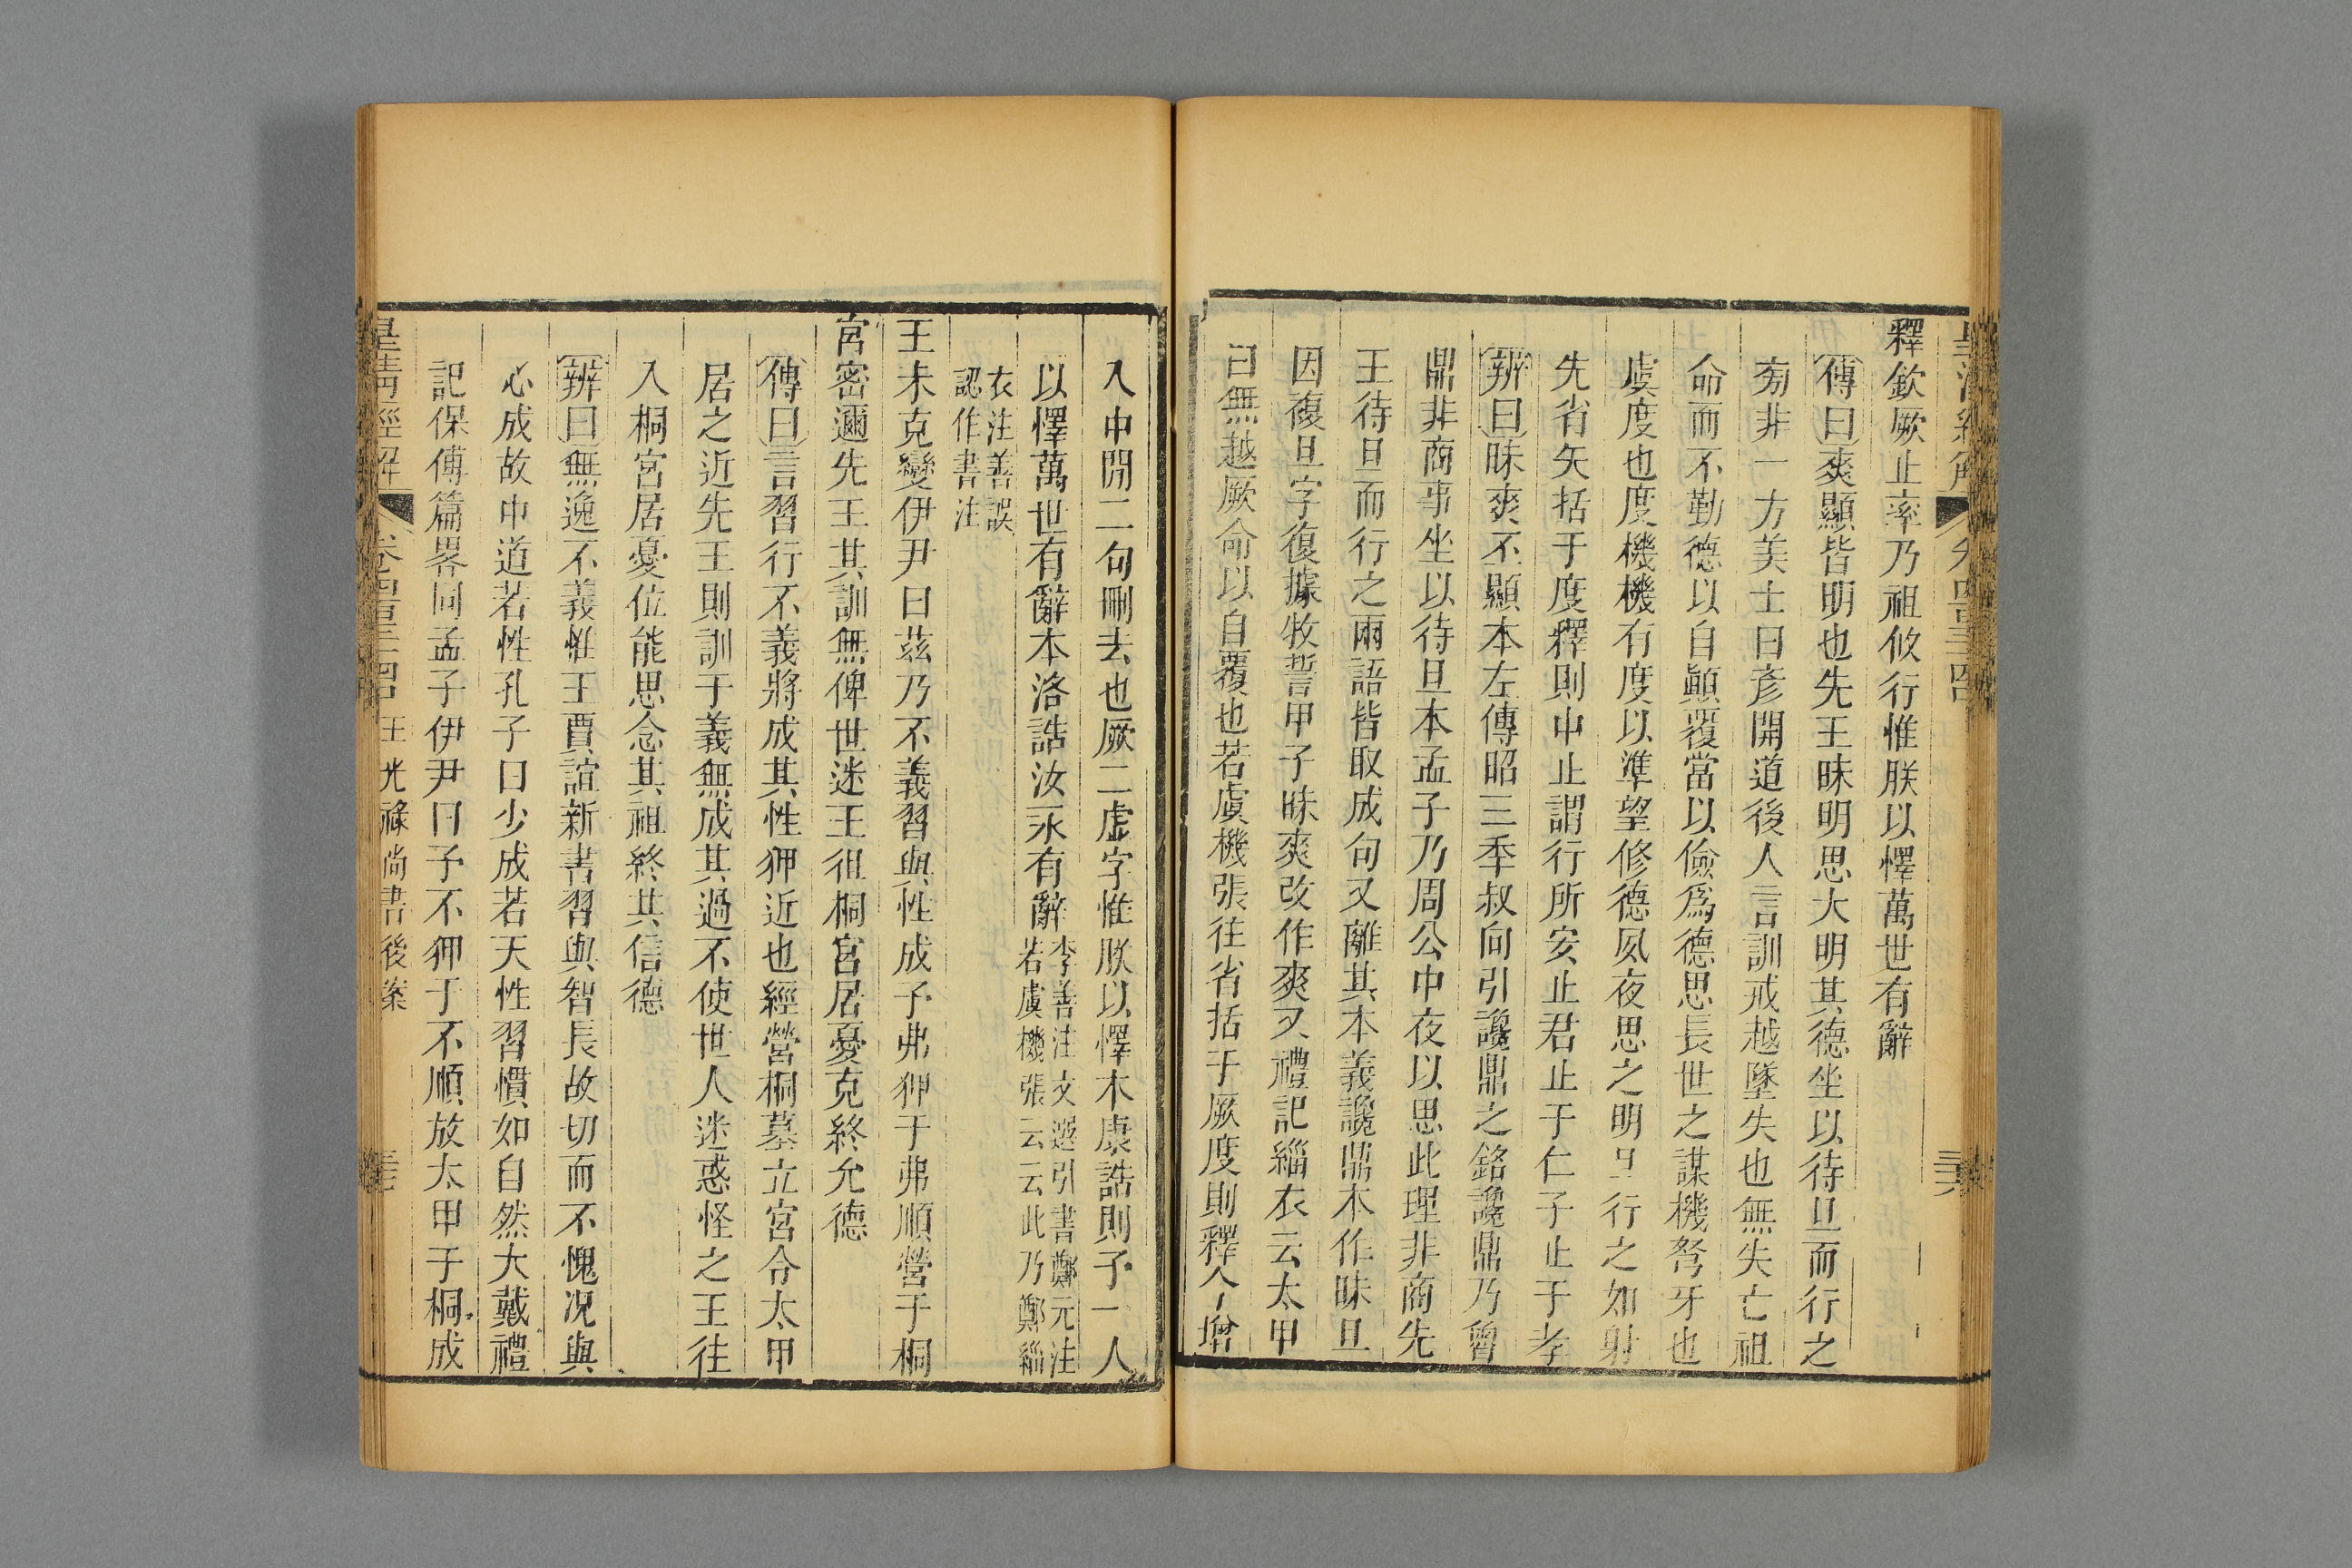 皇清經解
卷四百三十四
三六
釋欽厥止率乃祖攸行惟朕以懌萬世有辭
傳曰爽顯皆明也先王昧明思大明其德坐以待旦而行之
旁非一方美士曰彥開道後人言訓戒越墜失也無失亡祖
命而不勤德以自顚覆當以儉爲德思長世之謀機弩牙也
虞度也度機機有度以準望修德夙夜思之明旦行之如射
先省矢括于度釋則中止謂行所安止君止于仁子止于孝
辨曰昧爽丕顯本左傳昭三年叔向引讒鼎之銘讒鼎乃魯
鼎非商事坐以待旦本孟子乃周公中夜以思此理非商先
王待旦而行之兩語皆取成句又離其本義讒鼎本作昧旦
因複旦字復據牧誓甲子昧爽改作爽又禮記緇衣云太甲
曰無越厥命以自覆也若虞機張往省括于厥度則釋今增
入中閒二句刪去也厥二虛字惟朕以懌本康誥則予一人
以懌萬世有辭本洛誥汝永有辭李善注文選引書鄭元注
若虞機張云云此乃鄭緇
衣注善誤
認作書注
王未克變伊尹曰茲乃不義習與性成予弗狎于弗順營于桐
宮密邇先王其訓無俾世迷王徂桐宮居憂克終允德
傳曰言習行不義將成其性狎近也經營桐墓立宮令太甲
居之近先王則訓于義無成其過不使世人迷惑怪之王往
入桐宮居憂位能思念其祖終其信德
辨曰無逸不義惟王賈誼新書習與智長故切而不愧況與
心成故中道若性孔子曰少成若天性習慣如自然大戴禮
記保傅篇畧同孟子伊尹曰予不狎于不順放太甲于桐成
皇清經解
卷四百三十四
王光祿尚書後案
三七